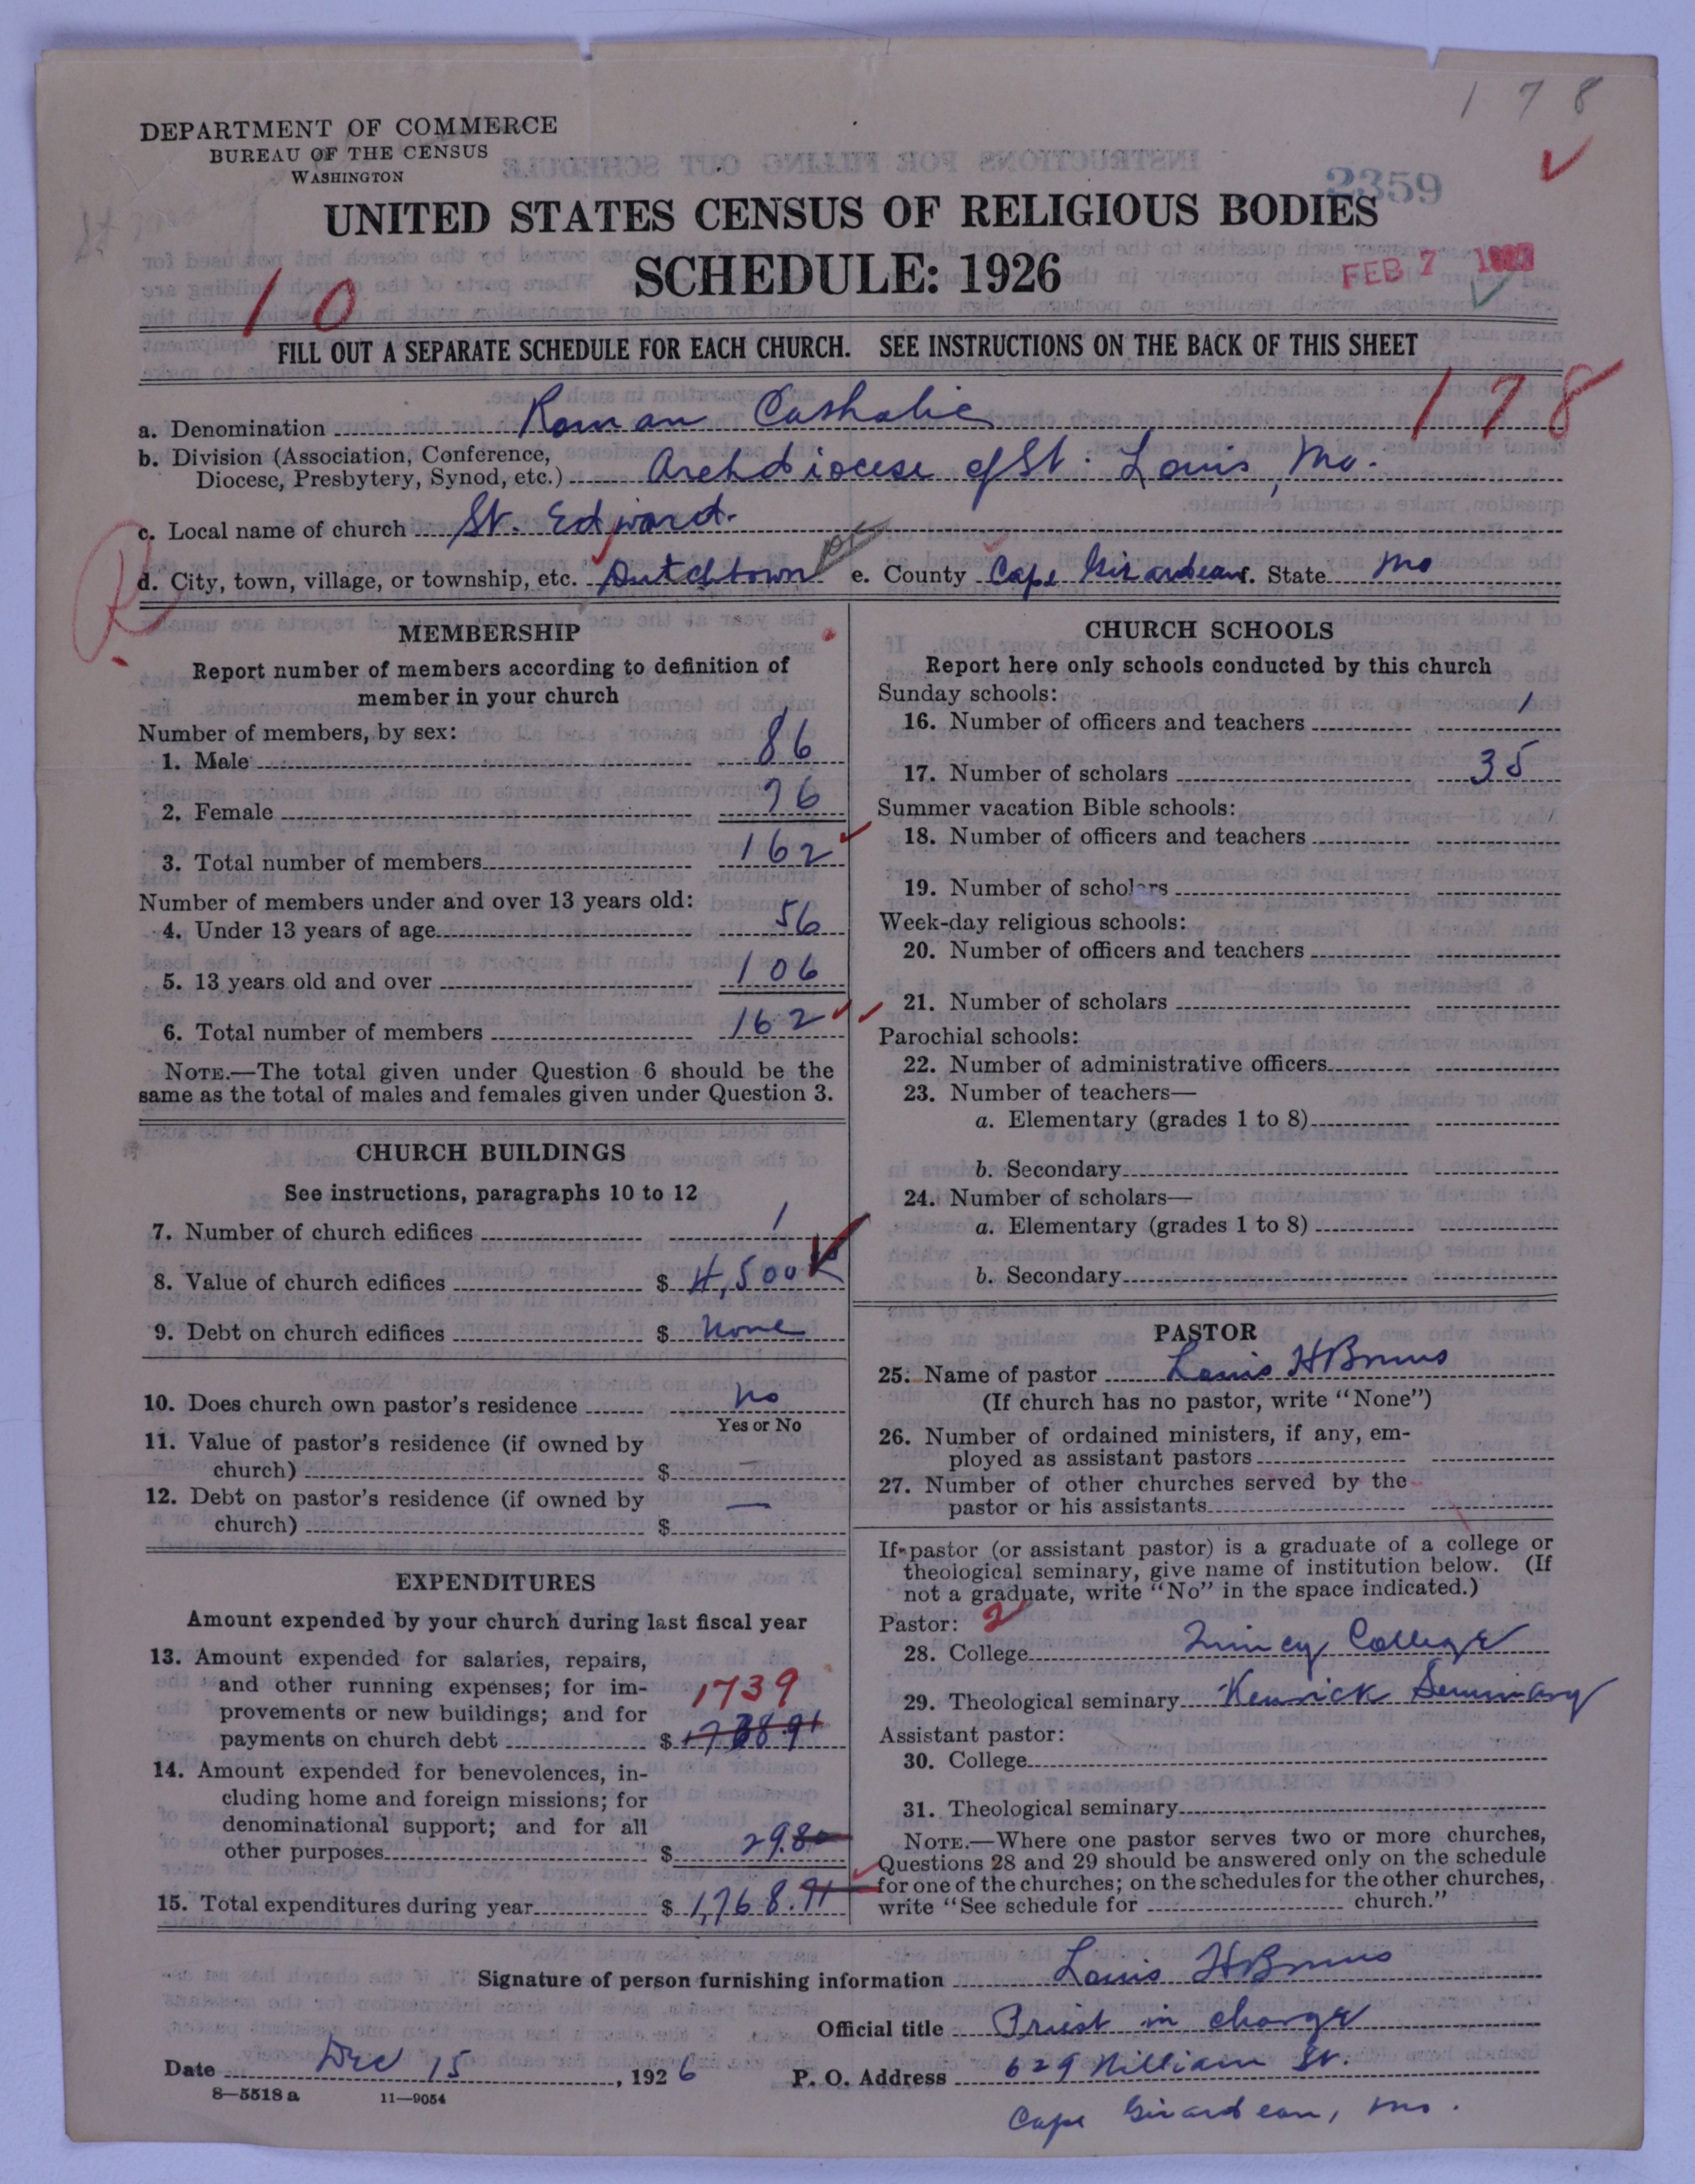 178
DEPARTMENT OF COMMERCE
BUREAU OF THE CENSUS
WASHINGTON
2359
UNITED STATES CENSUS OF RELIGIOUS BODIES
SCHEDULE: 1926
FEB 7 1927
10
FILL OUT A SEPARATE SCHEDULE FOR EACH CHURCH. SEE INSTRUCTIONS ON THE BACK OF THIS SHEET
178
a. Denomination Roman Catholic
b. Division (Association, Conference,
Diocese, Presbytery, Synod, etc.) Archdiocese of St. Louis, Mo.
c. Local name of church St. Edward.
R
d. City, town, village, or township, etc. Dutchtown e. County Cape Girardeau f. State Mo
MEMBERSHIP
Report number of members according to definition of
member in your church
Number of members, by sex:
1. Male 86
2. Female 76
3. Total number of members 162
Number of members under and over 13 years old:
4. Under 13 years of age 56
5. 13 years old and over 106
6. Total number of members 162
NOTE.—The total given under Question 6 should be the
same as the total of males and females given under Question 3.
CHURCH BUILDINGS
See instructions, paragraphs 10 to 12
7. Number of church edifices 1
8. Value of church edifices $ 4,500
9. Debt on church edifices $ None
10. Does church own pastor's residence No
Yes or No
11. Value of pastor's residence (if owned by
church) $ —
12. Debt on pastor's residence (if owned by
church) $ —
EXPENDITURES
Amount expended by your church during last fiscal year
13. Amount expended for salaries, repairs,
and other running expenses; for im-
provements or new buildings; and for 1739
payments on church debt $ 1738.91
14. Amount expended for benevolences, in-
cluding home and foreign missions; for
denominational support; and for all
other purposes $ 29.80
15. Total expenditures during year $ 1,768.71
CHURCH SCHOOLS
Report here only schools conducted by this church
Sunday schools:
16. Number of officers and teachers 1
17. Number of scholars 35
Summer vacation Bible schools:
18. Number of officers and teachers
19. Number of scholars
Week-day religious schools:
20. Number of officers and teachers
21. Number of scholars
Parochial schools:
22. Number of administrative officers
23. Number of teachers—
a. Elementary (grades 1 to 8)
b. Secondary
24. Number of scholars—
a. Elementary (grades 1 to 8)
b. Secondary
PASTOR
25. Name of pastor Louis H Bruns
(If church has no pastor, write "None")
26. Number of ordained ministers, if any, em-
ployed as assistant pastors
27. Number of other churches served by the
pastor or his assistants
If pastor (or assistant pastor) is a graduate of a college or
theological seminary, give name of institution below. (If
not a graduate, write "No" in the space indicated.)
Pastor: 2
28. College Quincy College
29. Theological seminary Kenrick Seminary
Assistant pastor:
30. College
31. Theological seminary
NOTE.—Where one pastor serves two or more churches,
Questions 28 and 29 should be answered only on the schedule
for one of the churches; on the schedules for the other churches,
write "See schedule for church."
Signature of person furnishing information Louis H Bruns
Official title Priest in charge
Date Dec 15, 1926 P. O. Address 629 William St.
8—5518 a 11—9054
Cape Girardeau, Mo.